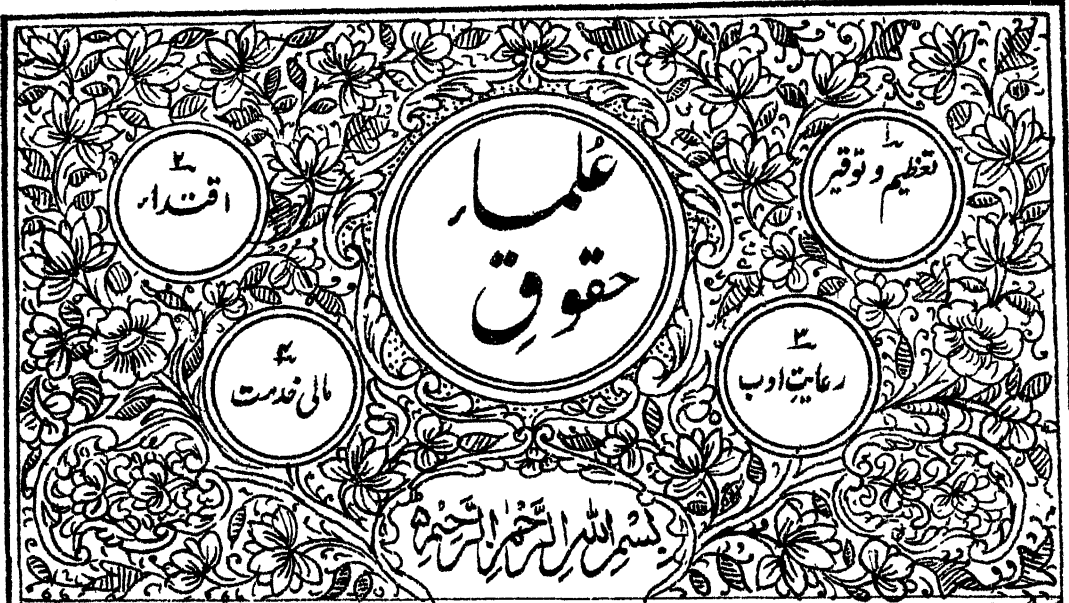 حقوقِ
عُلماء
۱
تعظیم و توقیر
۲
اقتداء
۳
رعایتِ ادب
۴
مالی خدمت
بِسْمِ اللهِ الرَّحْمٰنِ الرَّحِيْمِ